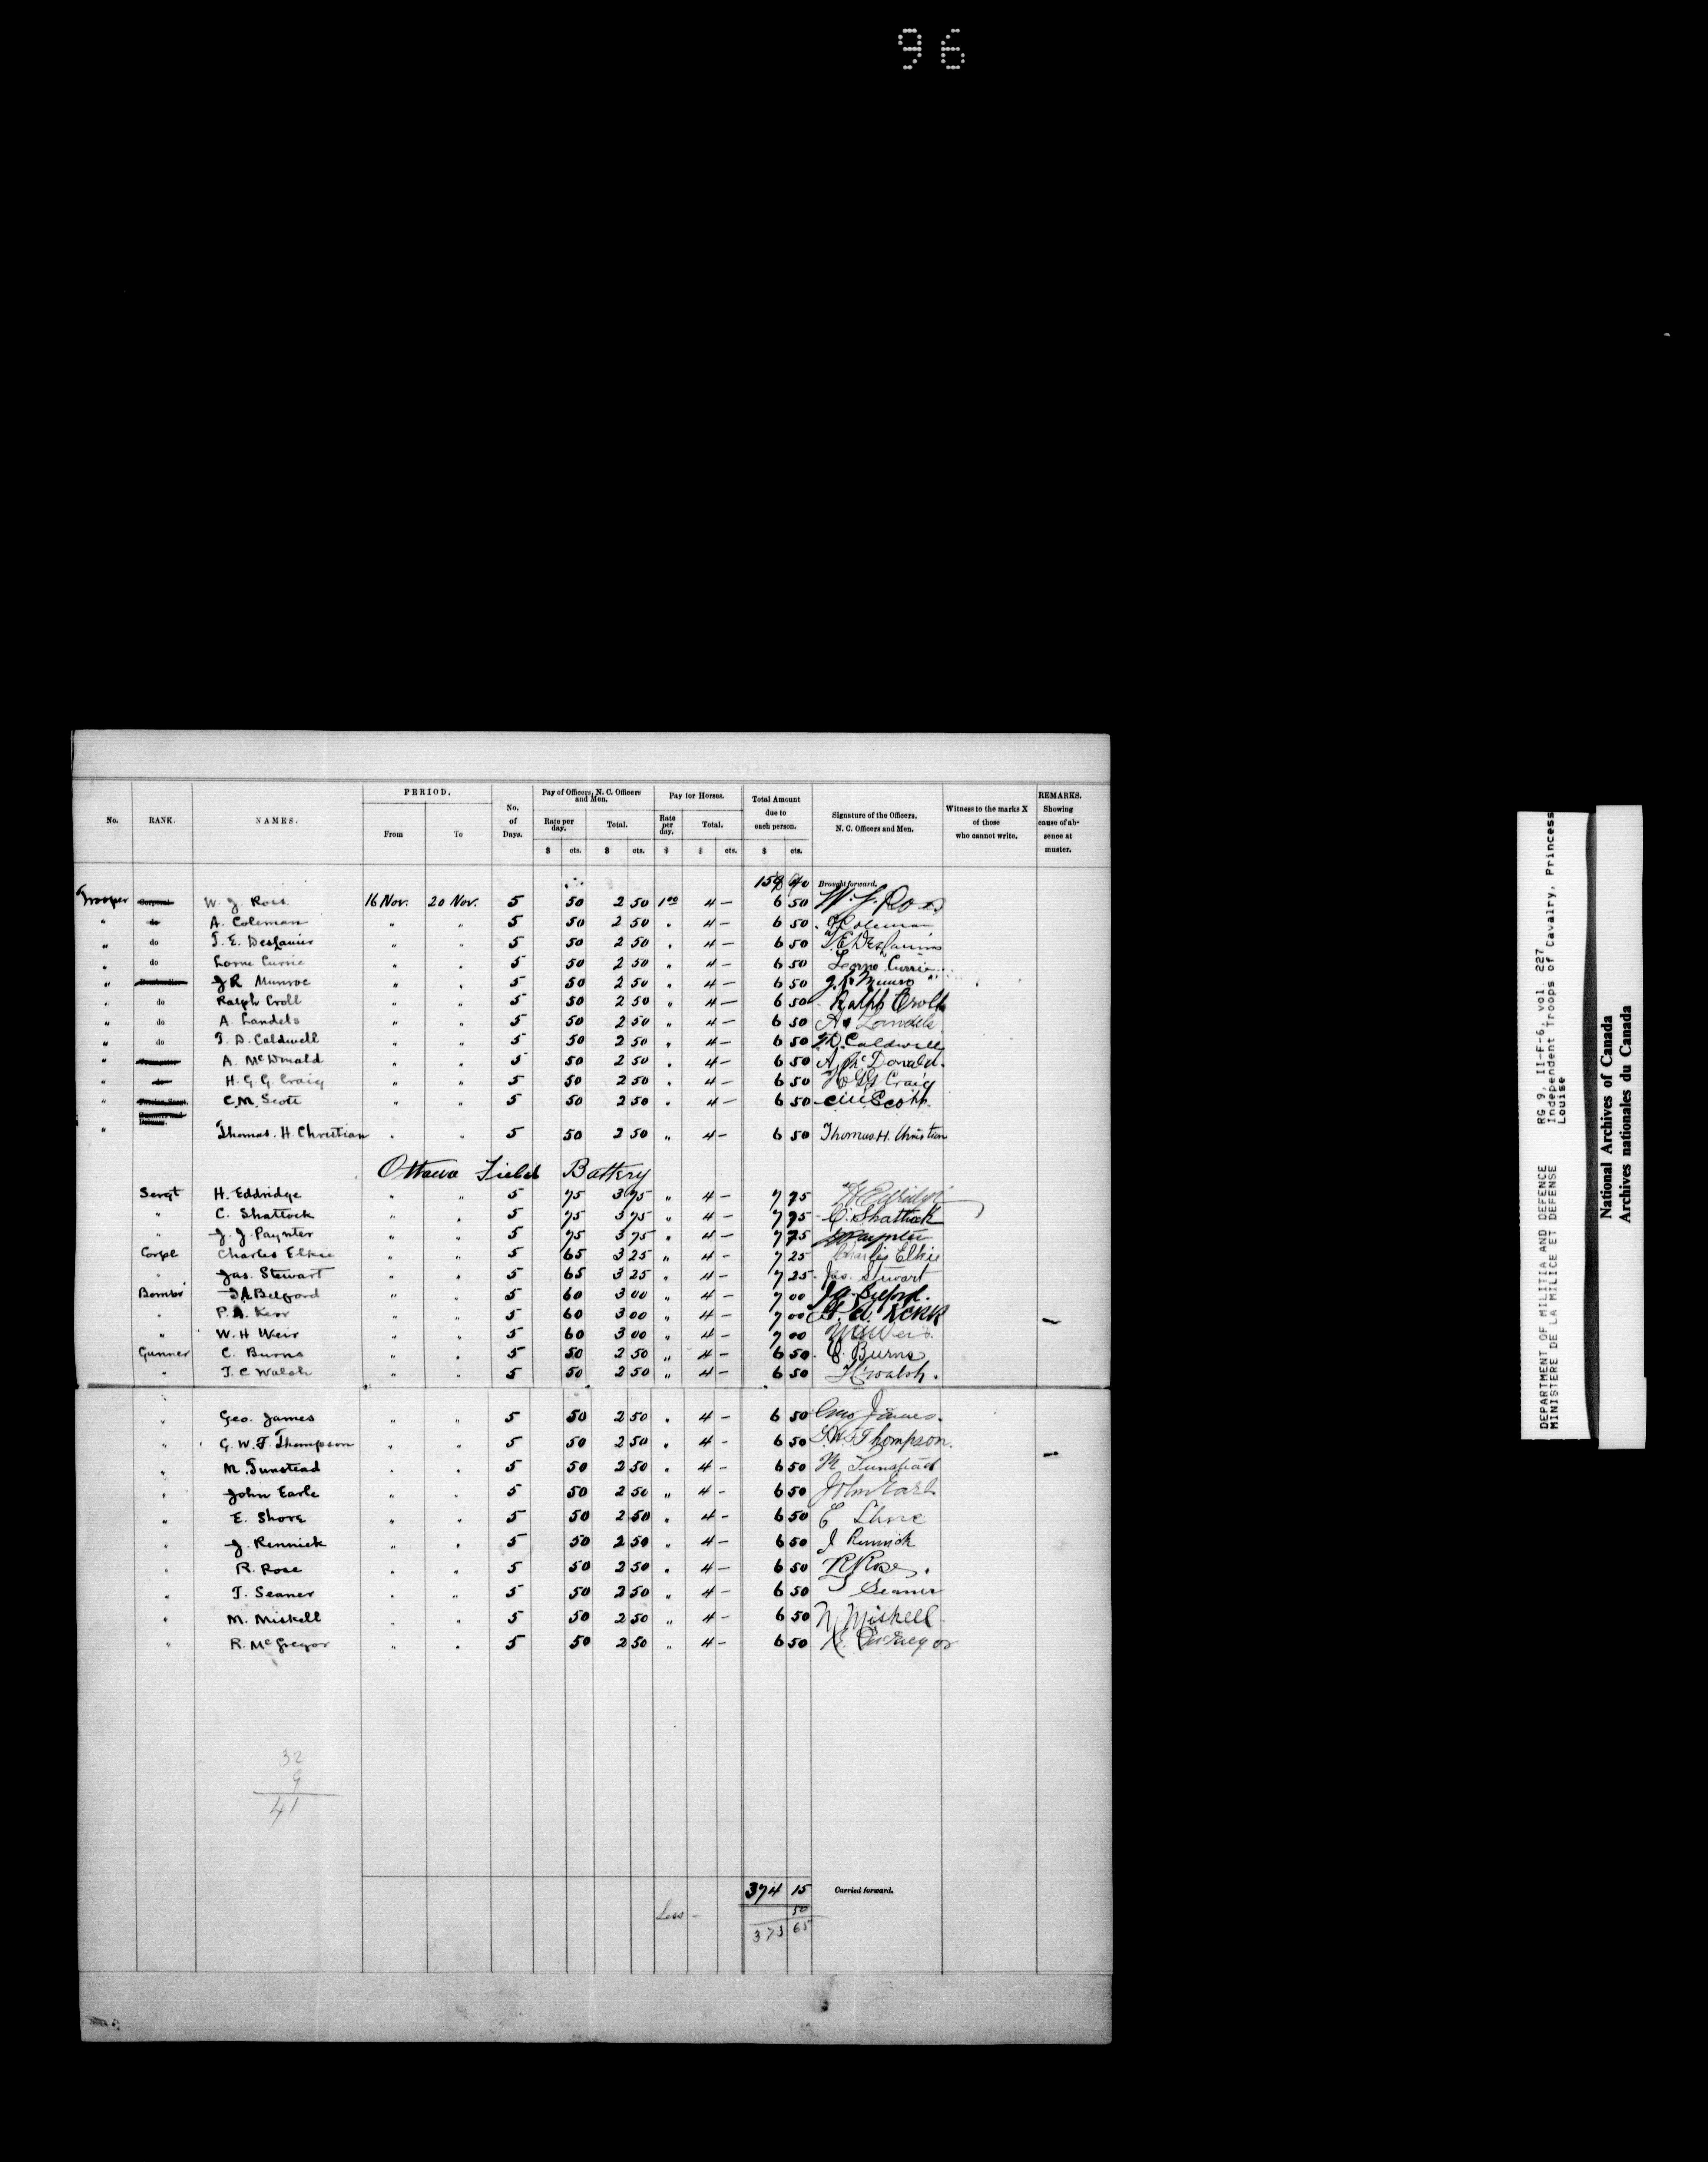 96
PERIOD. Pay of Officers, N. C. Officers and Men. Pay for Horses. Total Amount due to each person. REMARKS. Showing cause of absence at muster.
No. RANK. NAMES. From To No. of Days. Rate per day. Total. Rate per day. Total. Signature of the Officers, N. C. Officers and Men. Witness to the marks X of those who cannot write.
$ cts. $ cts. $ $ cts. $ cts.
Brought forward.
Trooper Corporal W. J. Ross 16 Nov. 20 Nov. 5 50 2 50 1 00 4 — 6 50 W. J. Ross
" do A. Coleman " " 5 50 2 50 " 4 — 6 50 Coleman
" do T. E. Desjanier " " 5 50 2 50 " 4 — 6 50
" do Lorne Currie " " 5 50 2 50 " 4 — 6 50 Lorne Currie
" J R Munroe " " 5 50 2 50 " 4 — 6 50 J. R. Munro
" do Ralph Croll " " 5 50 2 50 " 4 — 6 50 Ralph Croll
" do A. Landels " " 5 50 2 50 " 4 — 6 50 A. Landels
" do T. D. Caldwell " " 5 50 2 50 " 4 — 6 50 T. D. Caldwell
" A. McDonald " " 5 50 2 50 " 4 — 6 50 A. McDonald.
" do H. G. G. Craig " " 5 50 2 50 " 4 — 6 50 H G G Craig
" C. M. Scott " " 5 50 2 50 " 4 — 6 50 C M Scott
" Thomas. H. Christian " " 5 50 2 50 " 4 — 6 50 Thomas H. Christian
Ottawa Field Battery
Sergt H. Eddridge " " 5 75 3 75 " 4 — 7 75 H Eddridge
" C. Shattock " " 5 75 3 75 " 4 — 7 75 C. Shattock
" J. J. Paynter " " 5 75 3 75 " 4 — 7 75 Paynter
Corpl Charles Elkie " " 5 65 3 25 " 4 — 7 25 Charles Elkie
" Jas. Stewart " " 5 65 3 25 " 4 — 7 25 Jas. Stewart
Bombr J A Belford " " 5 60 3 00 " 4 — 7 00 J A Belford.
" P. A. Kerr " " 5 60 3 00 " 4 — 7 00 P. A. Kerr
" W. H Weir " " 5 60 3 00 " 4 — 7 00 W H Weir
Gunner C. Burns " " 5 50 2 50 " 4 — 6 50 C. Burns
" T. C Walsh " " 5 50 2 50 " 4 — 6 50 T C Walsh.
" Geo. James " " 5 50 2 50 " 4 — 6 50 Geo James.
" G. W. F. Thompson " " 5 50 2 50 " 4 - 6 50 G. W. F Thompson.
" M. Tunstead " " 5 50 2 50 " 4 - 6 50 M Tunstead
" John Earle " " 5 50 2 50 " 4 - 6 50 John Earle
" E. Shore " " 5 50 2 50 " 4 - 6 50 E Shore
" J. Rennick " " 5 50 2 50 " 4 - 6 50 J Rennick
" R. Rose " " 5 50 2 50 " 4 - 6 50 R Rose.
" T. Seaner " " 5 50 2 50 " 4 - 6 50 T Seaner
" M. Miskell " " 5 50 2 50 " 4 - 6 50 M Miskell
" R. McGregor " " 5 50 2 50 " 4 - 6 50 R. McGregor
32
9
41
374 15 Carried forward.
Less - 50
373 65
DEPARTMENT OF MILITIA AND DEFENCE RG 9, II-F-6, vol. 227
MINISTERE DE LA MILICE ET DEFENSE Independent Troops of Cavalry, Princess
Louise
National Archives of Canada
Archives nationales du Canada